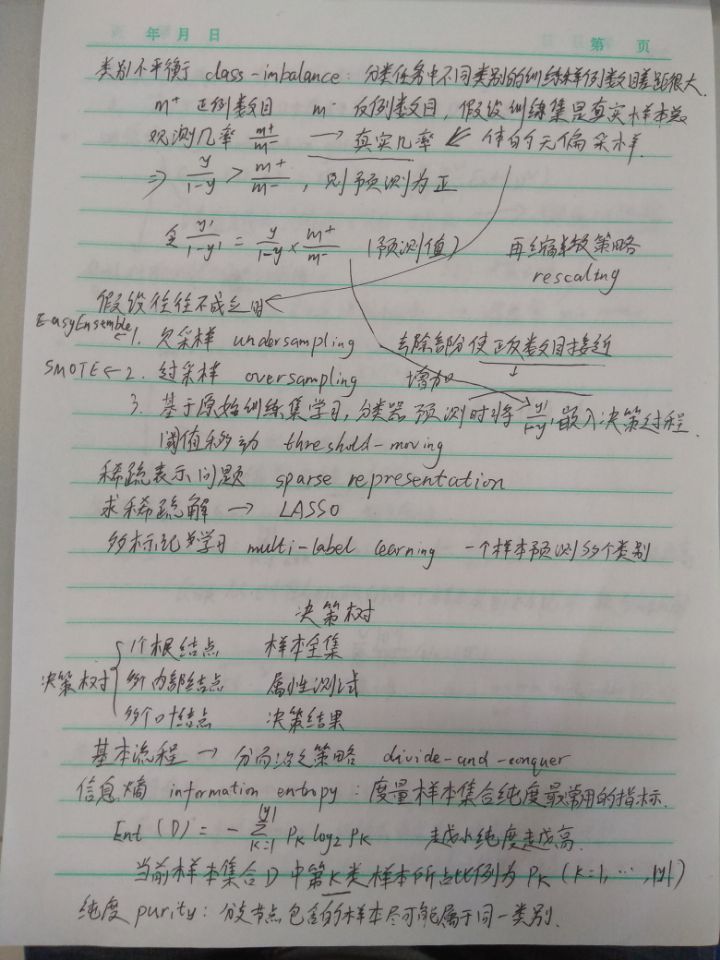 年 月 日
第 页
类别不平衡 class-imbalance: 分类任务中不同类别的训练样例数目差距很大.
m⁺ 正例数目 m⁻ 反例数目, 假设训练集是真实样本总
观测几率 m⁺/m⁻ → 真实几率 ← 体的无偏采样.
⇒ y/(1-y) > m⁺/m⁻, 则预测为正
令 y'/(1-y') = y/(1-y) × m⁺/m⁻ (预测值) 再缩放策略
rescaling
假设往往不成立用
EasyEnsemble ← 1. 欠采样 undersampling 去除部分使正反数目接近
SMOTE ← 2. 过采样 oversampling 增加
3. 基于原始训练集学习, 分类器预测时将 y'/(1-y') 嵌入决策过程.
阈值移动 threshold-moving
稀疏表示问题 sparse representation
求稀疏解 → LASSO
多标记学习 multi-label learning 一个样本预测多个类别
决策树
1个根结点 样本全集
决策树 多个内部结点 属性测试
多个叶结点 决策结果
基本流程 → 分而治之策略 divide-and-conquer
信息熵 information entropy: 度量样本集合纯度最常用的指标.
Ent (D) = - Σ_{k=1}^{|y|} P_k log₂ P_k 越小纯度越高.
当前样本集合D中第K类样本所占比例为 P_k (k=1, ⋯, |y|)
纯度 purity: 分支节点包含的样本尽可能属于同一类别.